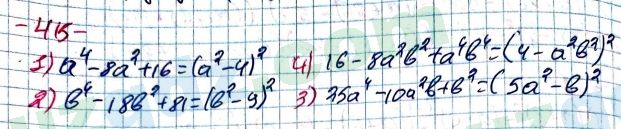 -415-
1) a⁴-8a²+16=(a²-4)² 4) 16-8a²b²+a⁴b⁴=(4-a²b²)²
2) b⁴-18b²+81=(b²-9)² 3) 25a⁴-10a²b+b²=(5a²-b)²